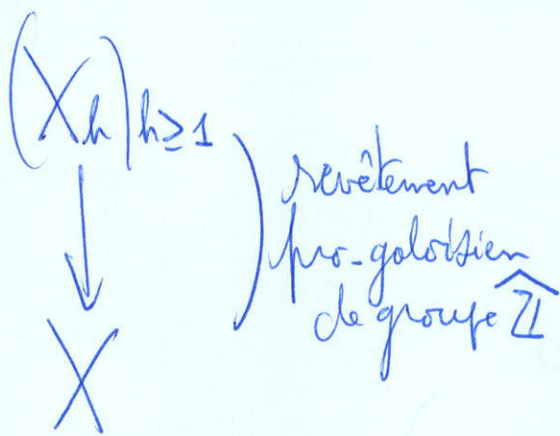 (X_h)_{h≥1}
revêtement
pro-galoisien
de groupe \widehat{ℤ}
X